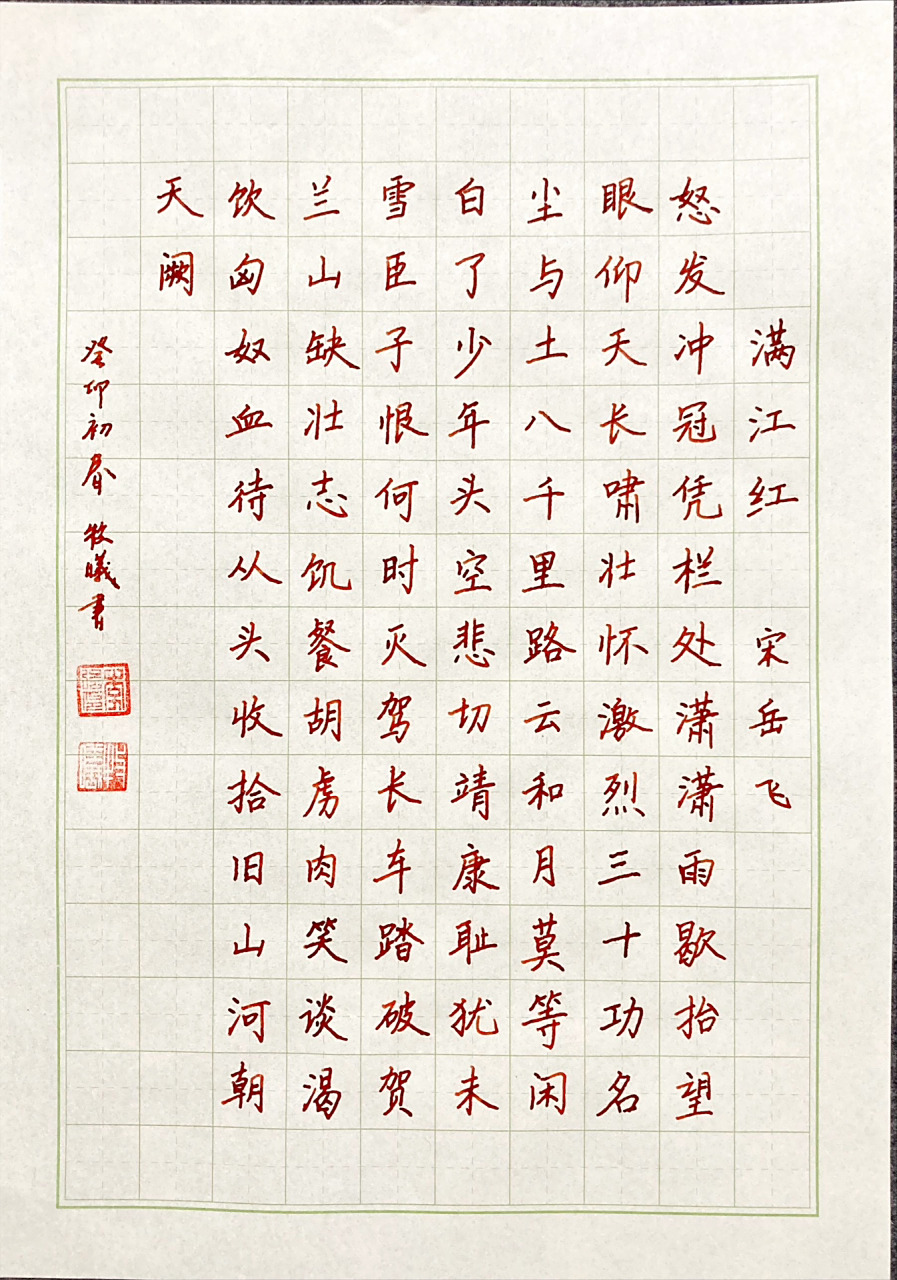 满江红 宋岳飞
怒发冲冠凭栏处潇潇雨歇抬望
眼仰天长啸壮怀激烈三十功名
尘与土八千里路云和月莫等闲
白了少年头空悲切靖康耻犹未
雪臣子恨何时灭驾长车踏破贺
兰山缺壮志饥餐胡虏肉笑谈渴
饮匈奴血待从头收拾旧山河朝
天阙
癸卯初春 牧曦书